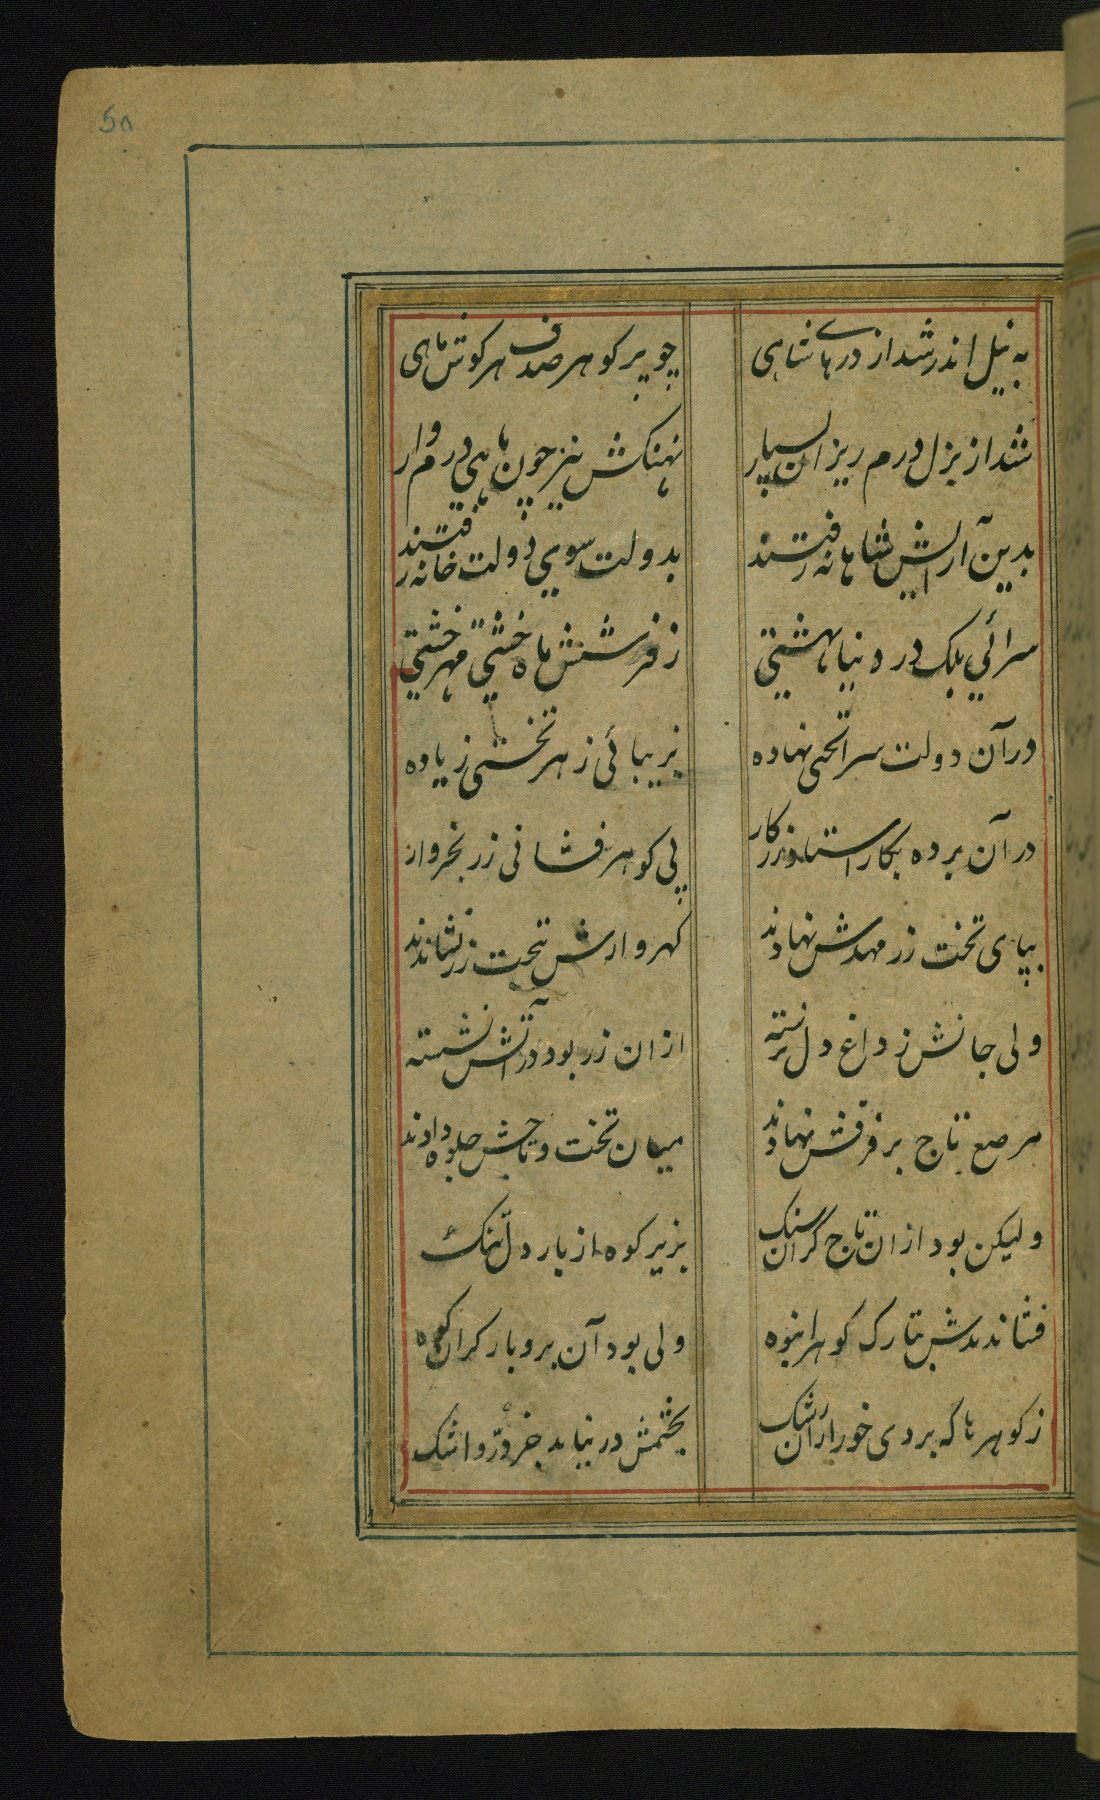 50
به نیل اندر شد از درهای شاهی چو پر کوهر صدف هر کوش ماهی
شد از بزل درم ریزان بسیار نهنکش نیز چون ماهی درم وار
بدین آرایش شاهانه رفتند بدولت سوی دولت خانه رفتند
سرائی بلک در دنیا بهشتی ز فرشش ماه خشتی مهر خشتی
در آن دولت سرا تختی نهاده بزیبائی ز هر تختی زیاده
در آن برده بکار استاد زرکار پی کوهر فشانی زر بخروار
بپای تخت زر مهدش نهادند کهروارش بتخت زر نشاندند
ولی جانش ز داغ دل نرسته از ان زر بود در آتش نشسته
مرصع تاج بر فرقش نهادند میان تخت و تاجش جلوه دادند
ولیکن بود از ان تاج گران سنک بزیر کوه از بار دل تنک
فشاندندش بتارک کوهر انبوه ولی بود آن برو بار کران کوه
ز کوهرها که بردی خور ازان رشک بچشمش در نیامد جز در و اشک